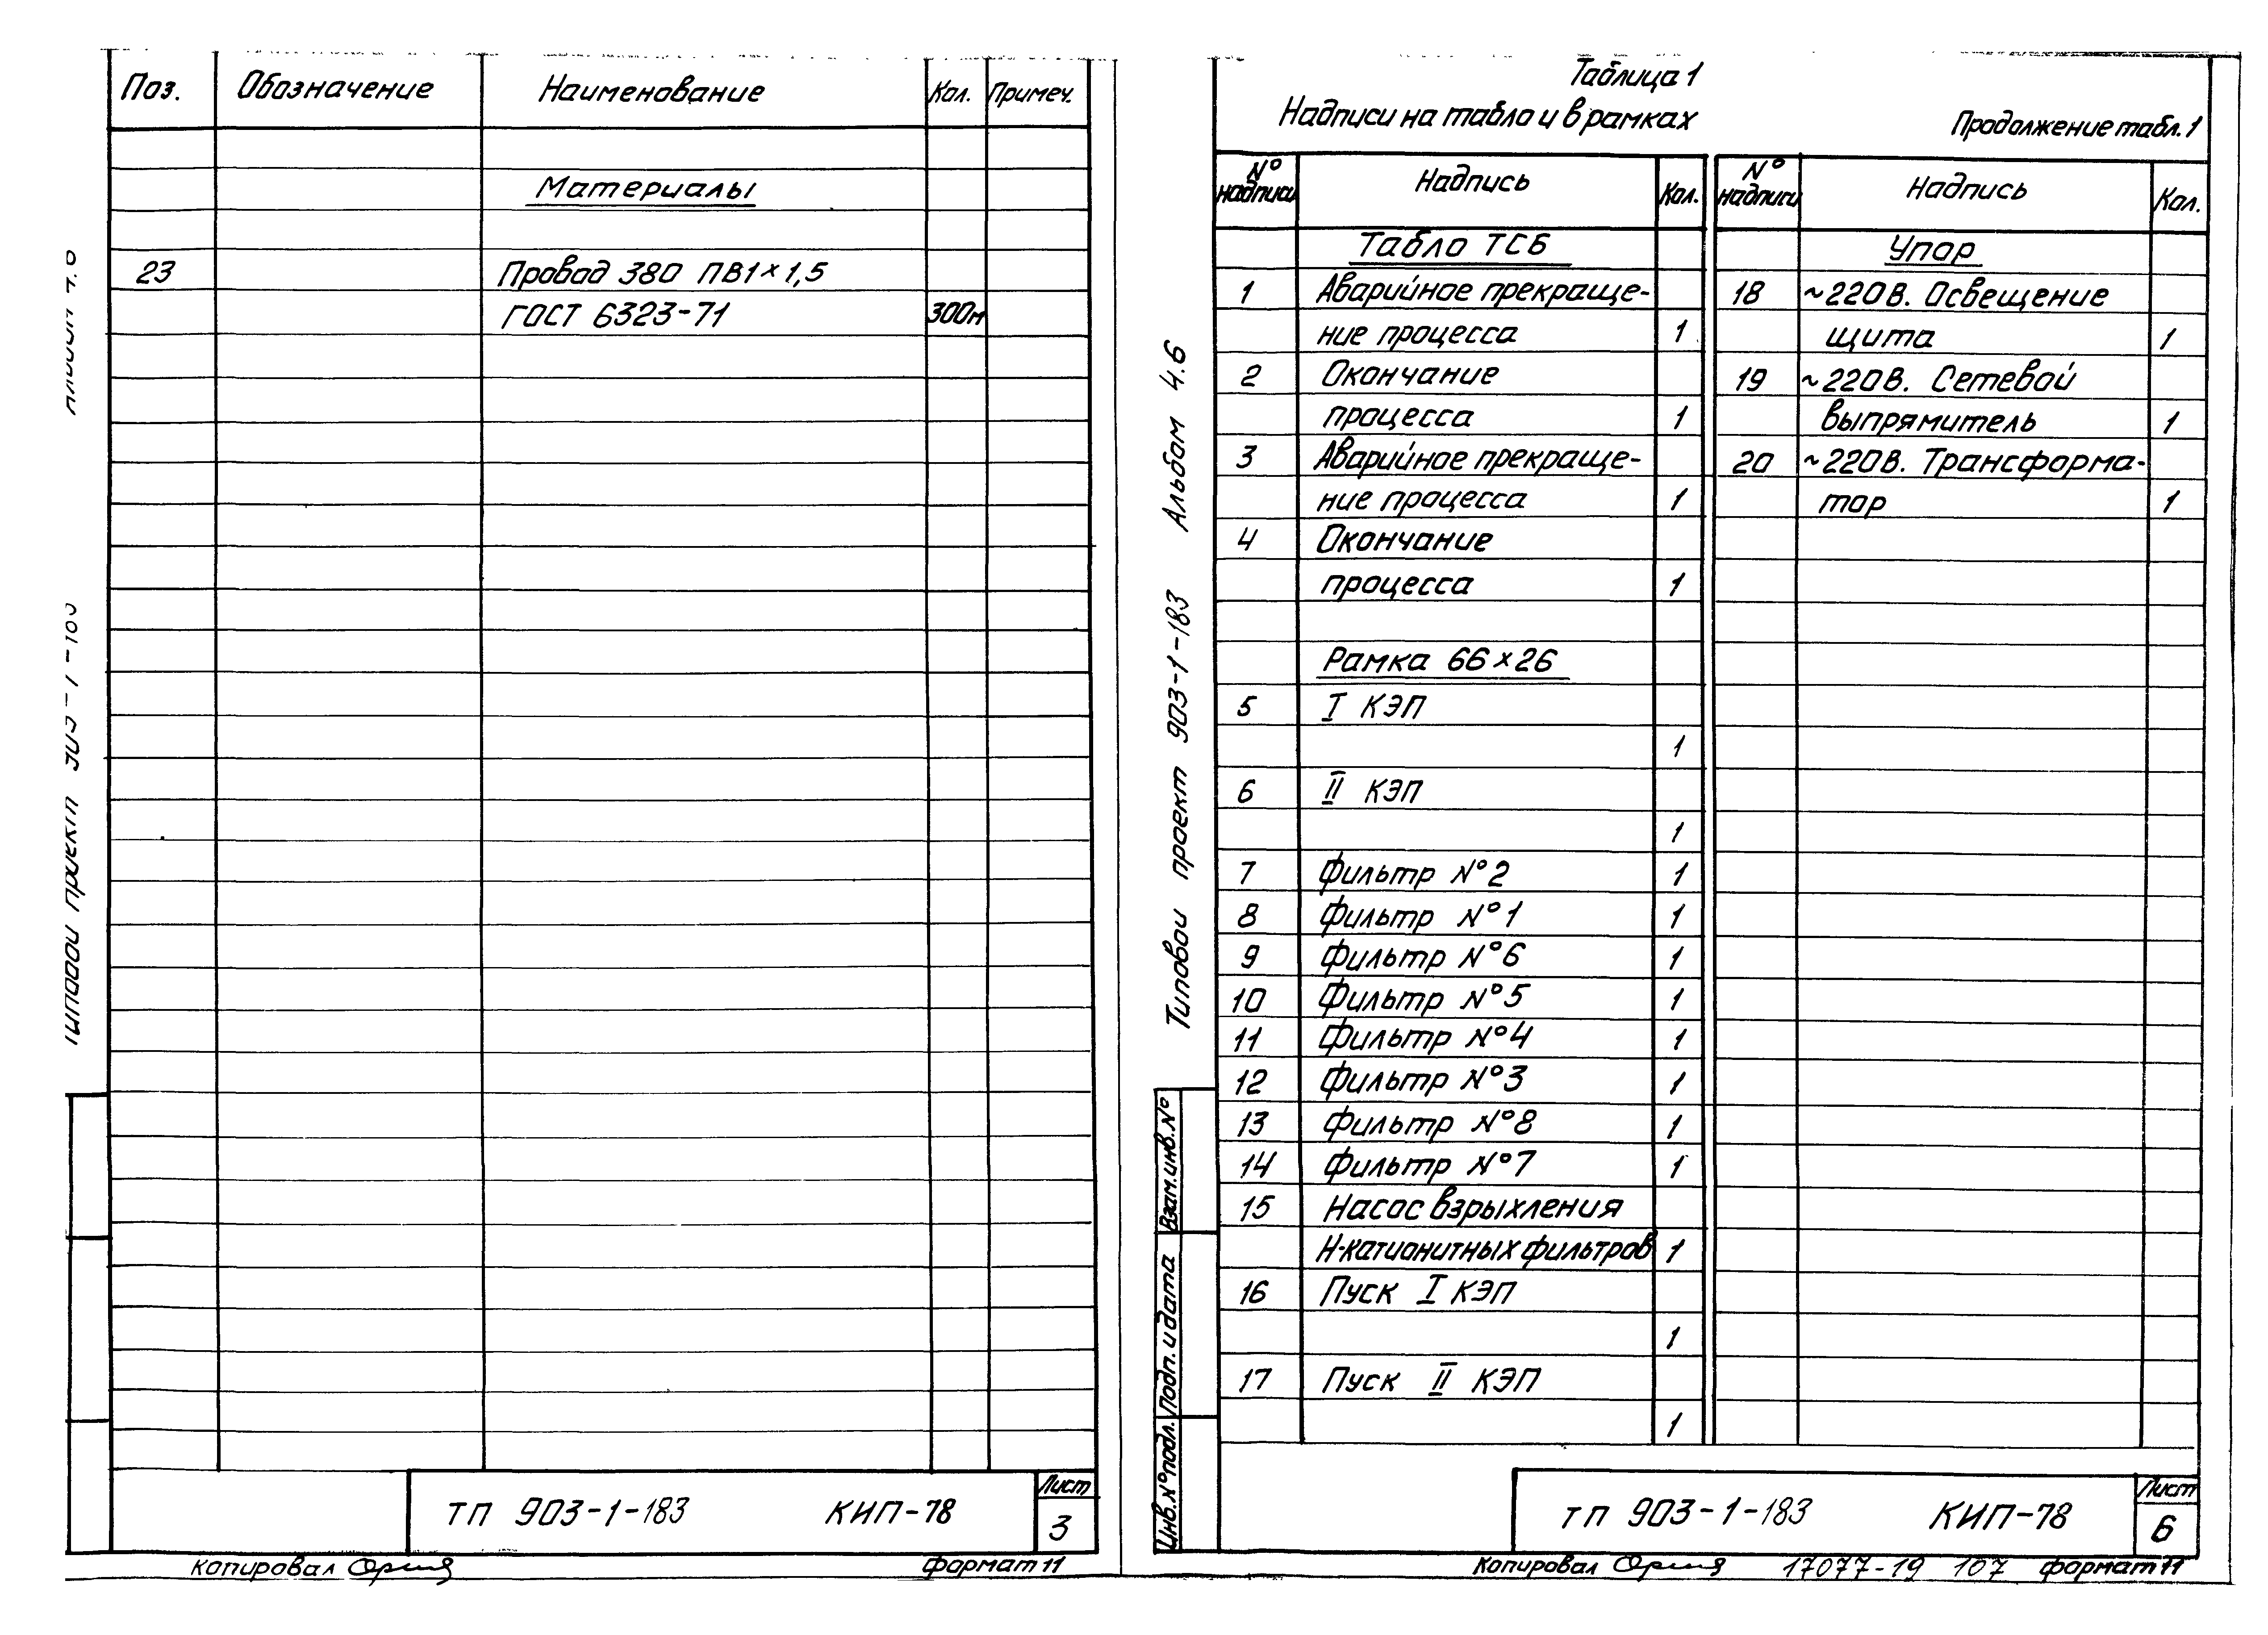 Поз. Обозначение Наименование Кол. Примеч.
Материалы
23 Провод 380 ПВ1×1,5
ГОСТ 6323-71 300м
Типовой проект
ТП 903-1-183 КИП-78 Лист
3
Копировал формат 11
Таблица 1
Надписи на табло и в рамках
Продолжение табл. 1
Альбом 4.6
Типовой проект 903-1-183
Взам.инв.№
Подп. и дата
Инв.№подл.
№ надписи Надпись Кол.
Табло ТСБ
1 Аварийное прекраще-
ние процесса 1
2 Окончание
процесса 1
3 Аварийное прекраще-
ние процесса 1
4 Окончание
процесса 1
Рамка 66×26
5 I КЭП
1
6 II КЭП
1
7 Фильтр №2 1
8 Фильтр №1 1
9 Фильтр №6 1
10 Фильтр №5 1
11 Фильтр №4 1
12 Фильтр №3 1
13 Фильтр №8 1
14 Фильтр №7 1
15 Насос взрыхления
Н-катионитных фильтров 1
16 Пуск I КЭП
1
17 Пуск II КЭП
1
№ надписи Надпись Кол.
Упор
18 ~220В. Освещение
щита 1
19 ~220В. Сетевой
выпрямитель 1
20 ~220В. Трансформа-
тор 1
ТП 903-1-183 КИП-78 Лист
6
Копировал 17077-19 107 формат 11